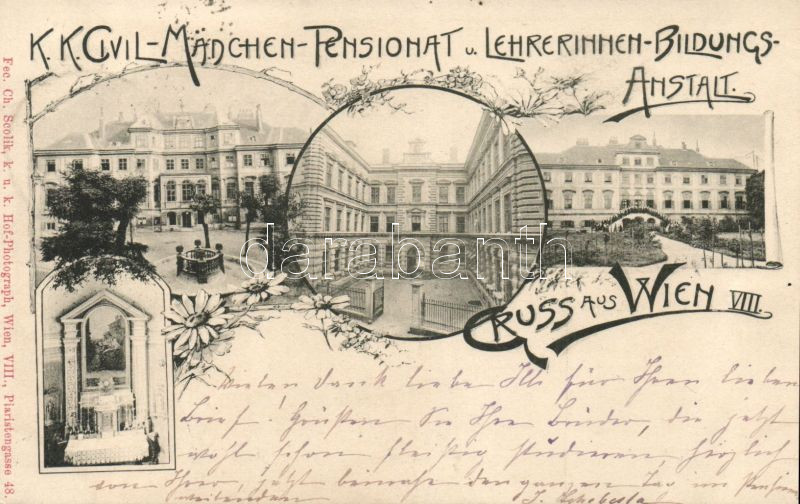 K. K. CIVIL-MÄDCHEN-PENSIONAT u. LEHRERINNEN-BILDUNGS-
ANSTALT.
Fec. Ch. Scolik, k. u. k. Hof-Photograph, Wien, VIII., Piaristengasse 48.
darabanth
GRUSS AUS WIEN VIII.
Vielen Dank liebe Illi für Ihren lieben
Brief! Grüßen Sie Ihre Brüder, die jetzt
wohl schon fleißig studieren, herzlich
von Ihrer, jetzt beinahe den ganzen Tag im